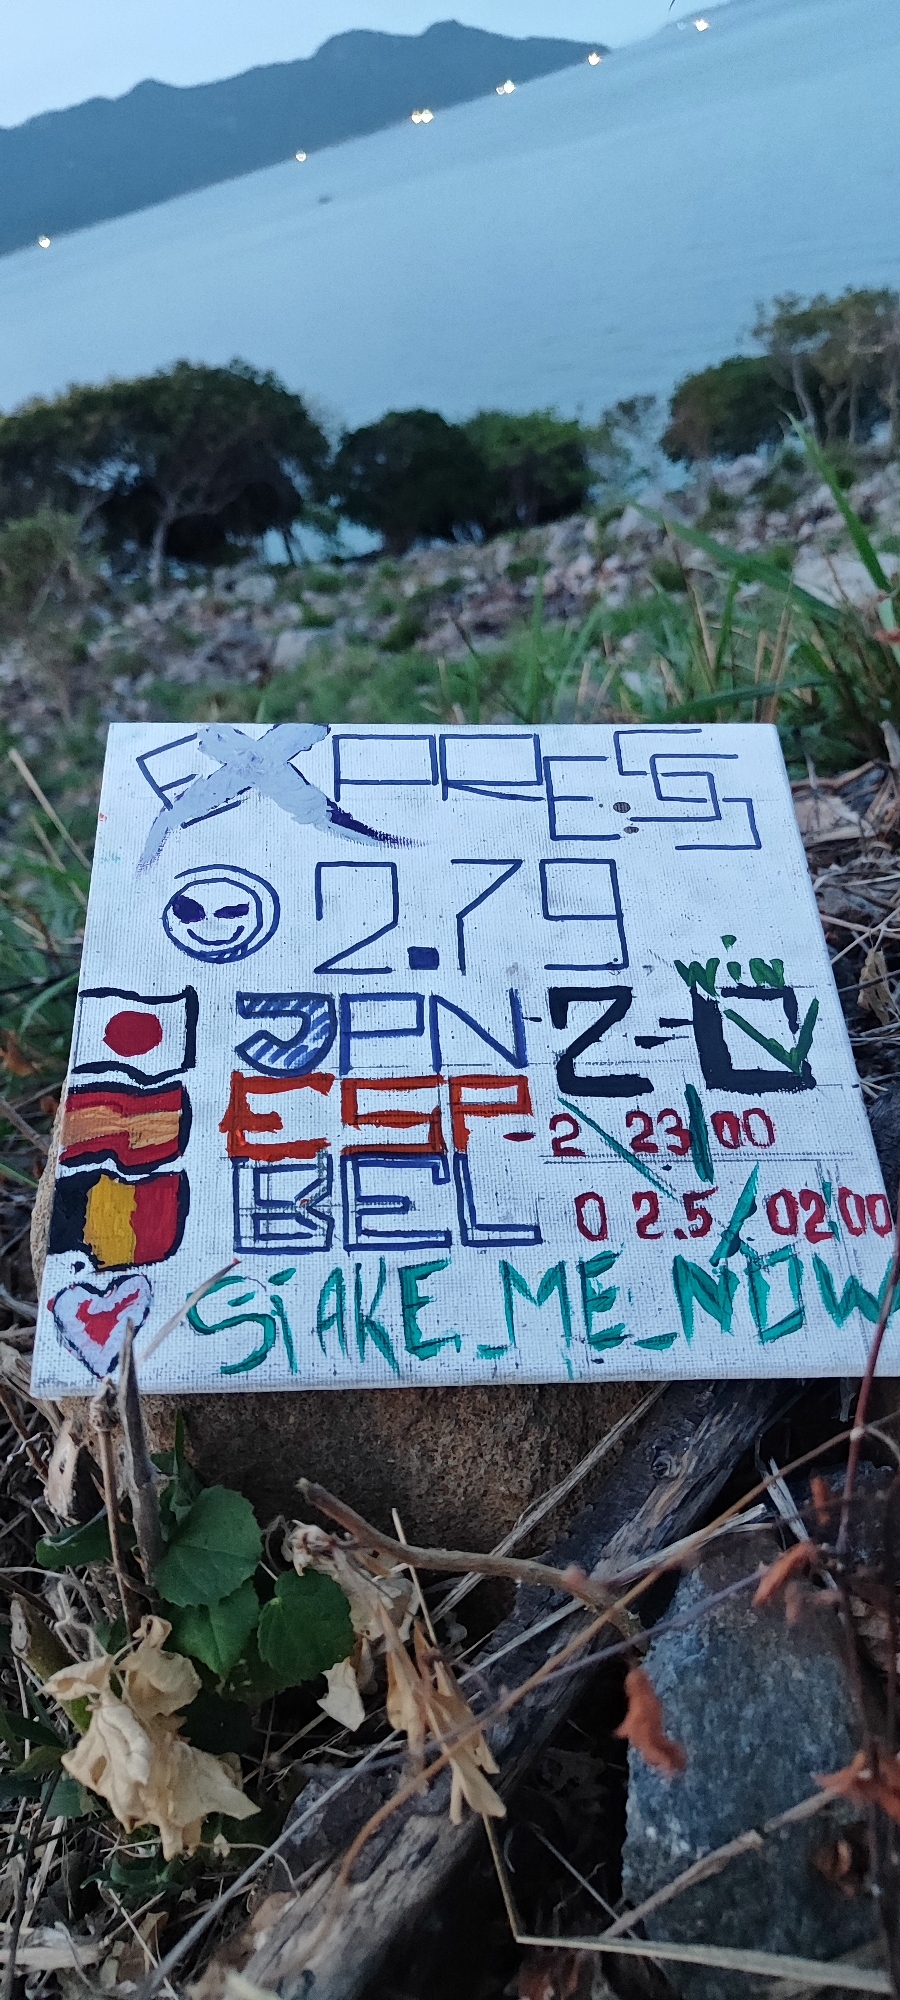 EXPRESS
2.79
WiN
JPN-2-0
ESP-2 23/00
BEL 0 2.5/02:00
STAKE_ME_NOW